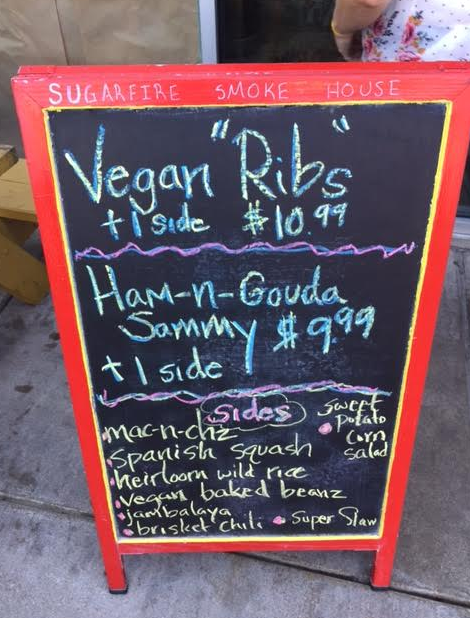 SUGARFIRE SMOKE HOUSE
Vegan "Ribs"
+1 side $10.99
Ham-n-Gouda
Sammy $9.99
+1 side
sides
mac-n-chz
spanish squash
heirloom wild rice
vegan baked beanz
jambalaya
brisket chili
sweet
potato
corn
salad
Super Slaw